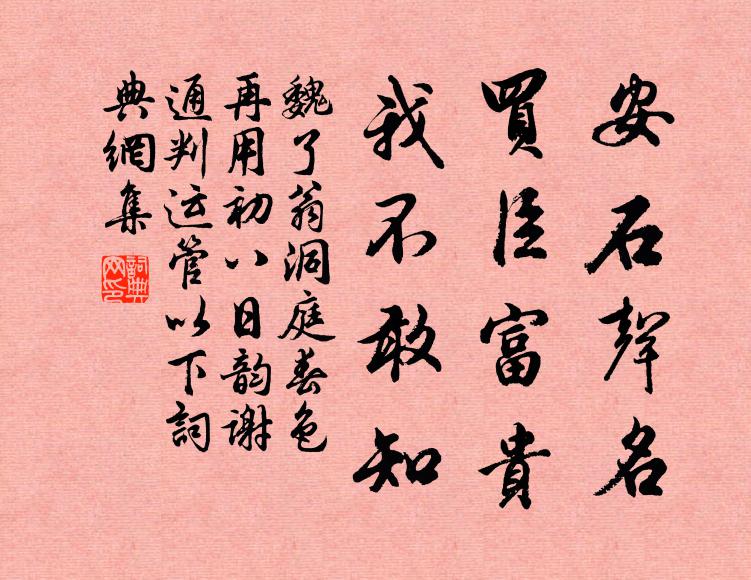 安石聲名
買臣富貴
我不敢知
魏了翁洞庭春色
再用初八日韵谢
通判运管以下詞
典網集
詞典
网印